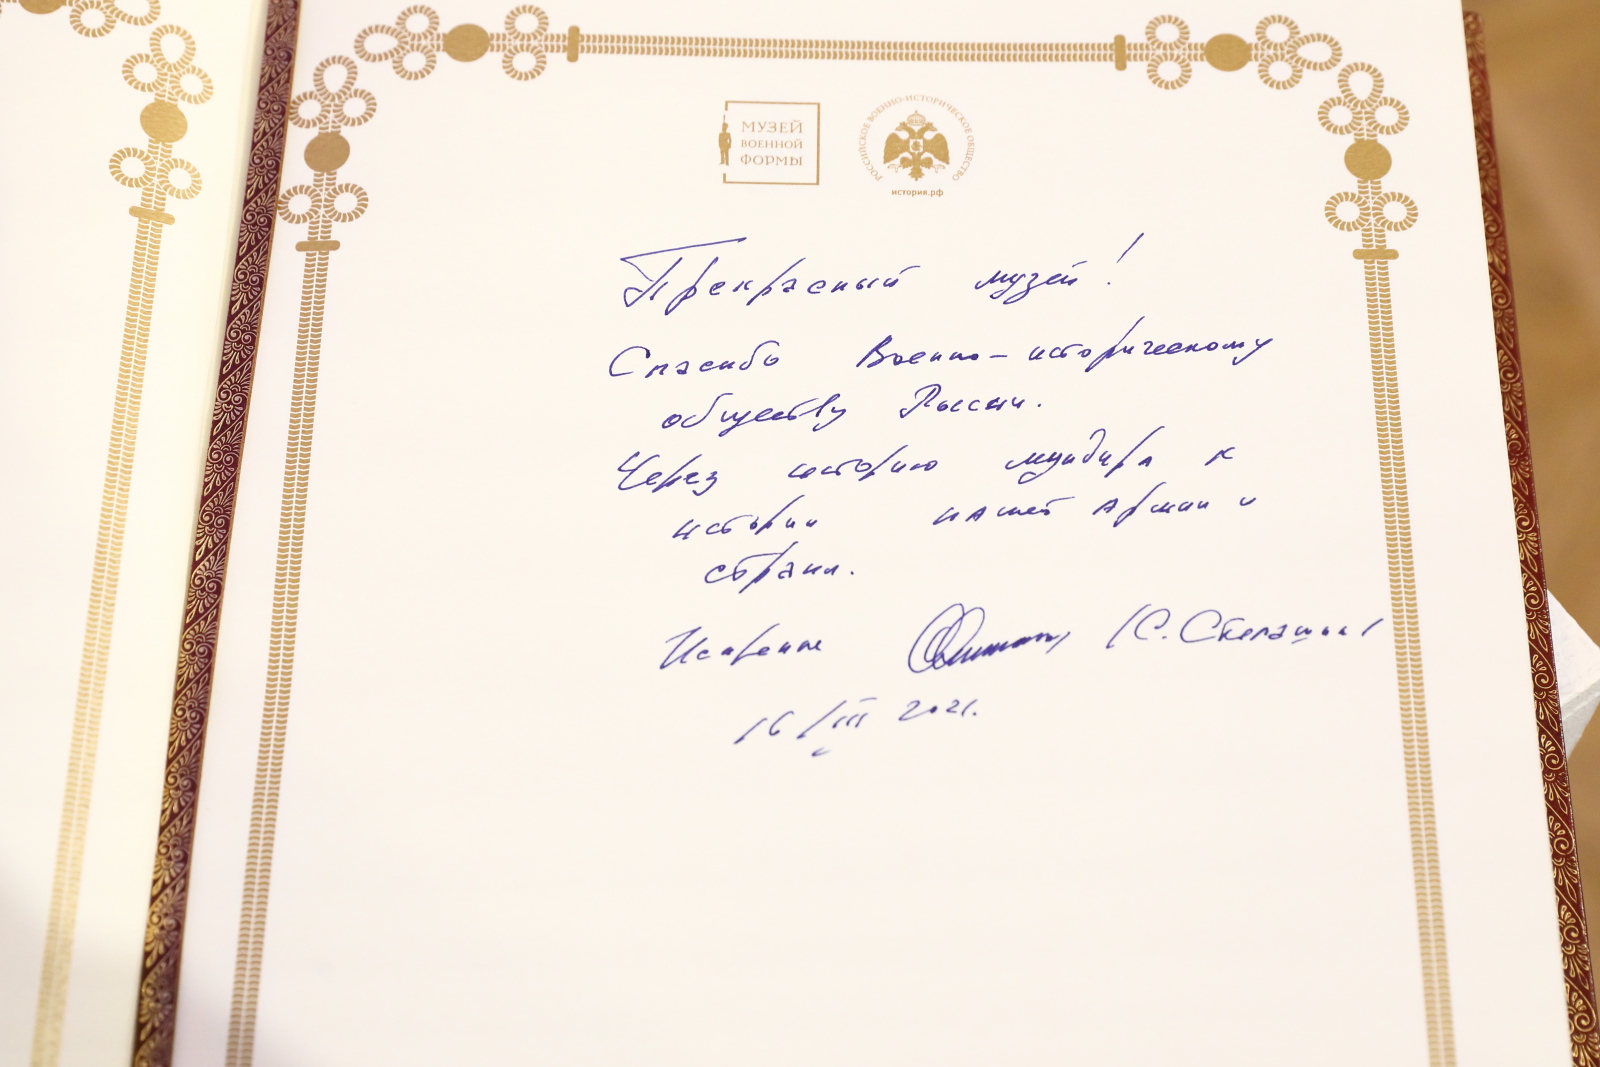 МУЗЕЙ
ВОЕННОЙ
ФОРМЫ
РОССИЙСКОЕ ВОЕННО-ИСТОРИЧЕСКОЕ ОБЩЕСТВО
история.рф
Прекрасный музей!
Спасибо Военно-историческому
обществу России.
Через историю мундира к
истории нашей армии и
страны.
Искренне (С. Степашин)
16/III 2021.